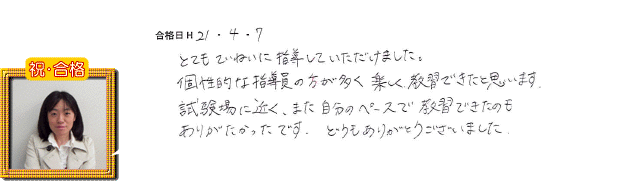 合格日 H 21・4・7
とてもていねいに指導していただけました。
祝・合格
個性的な指導員の方が多く楽しく教習できたと思います。
試験場に近く、また自分のペースで教習できたのも
ありがたかったです。どうもありがとうございました。